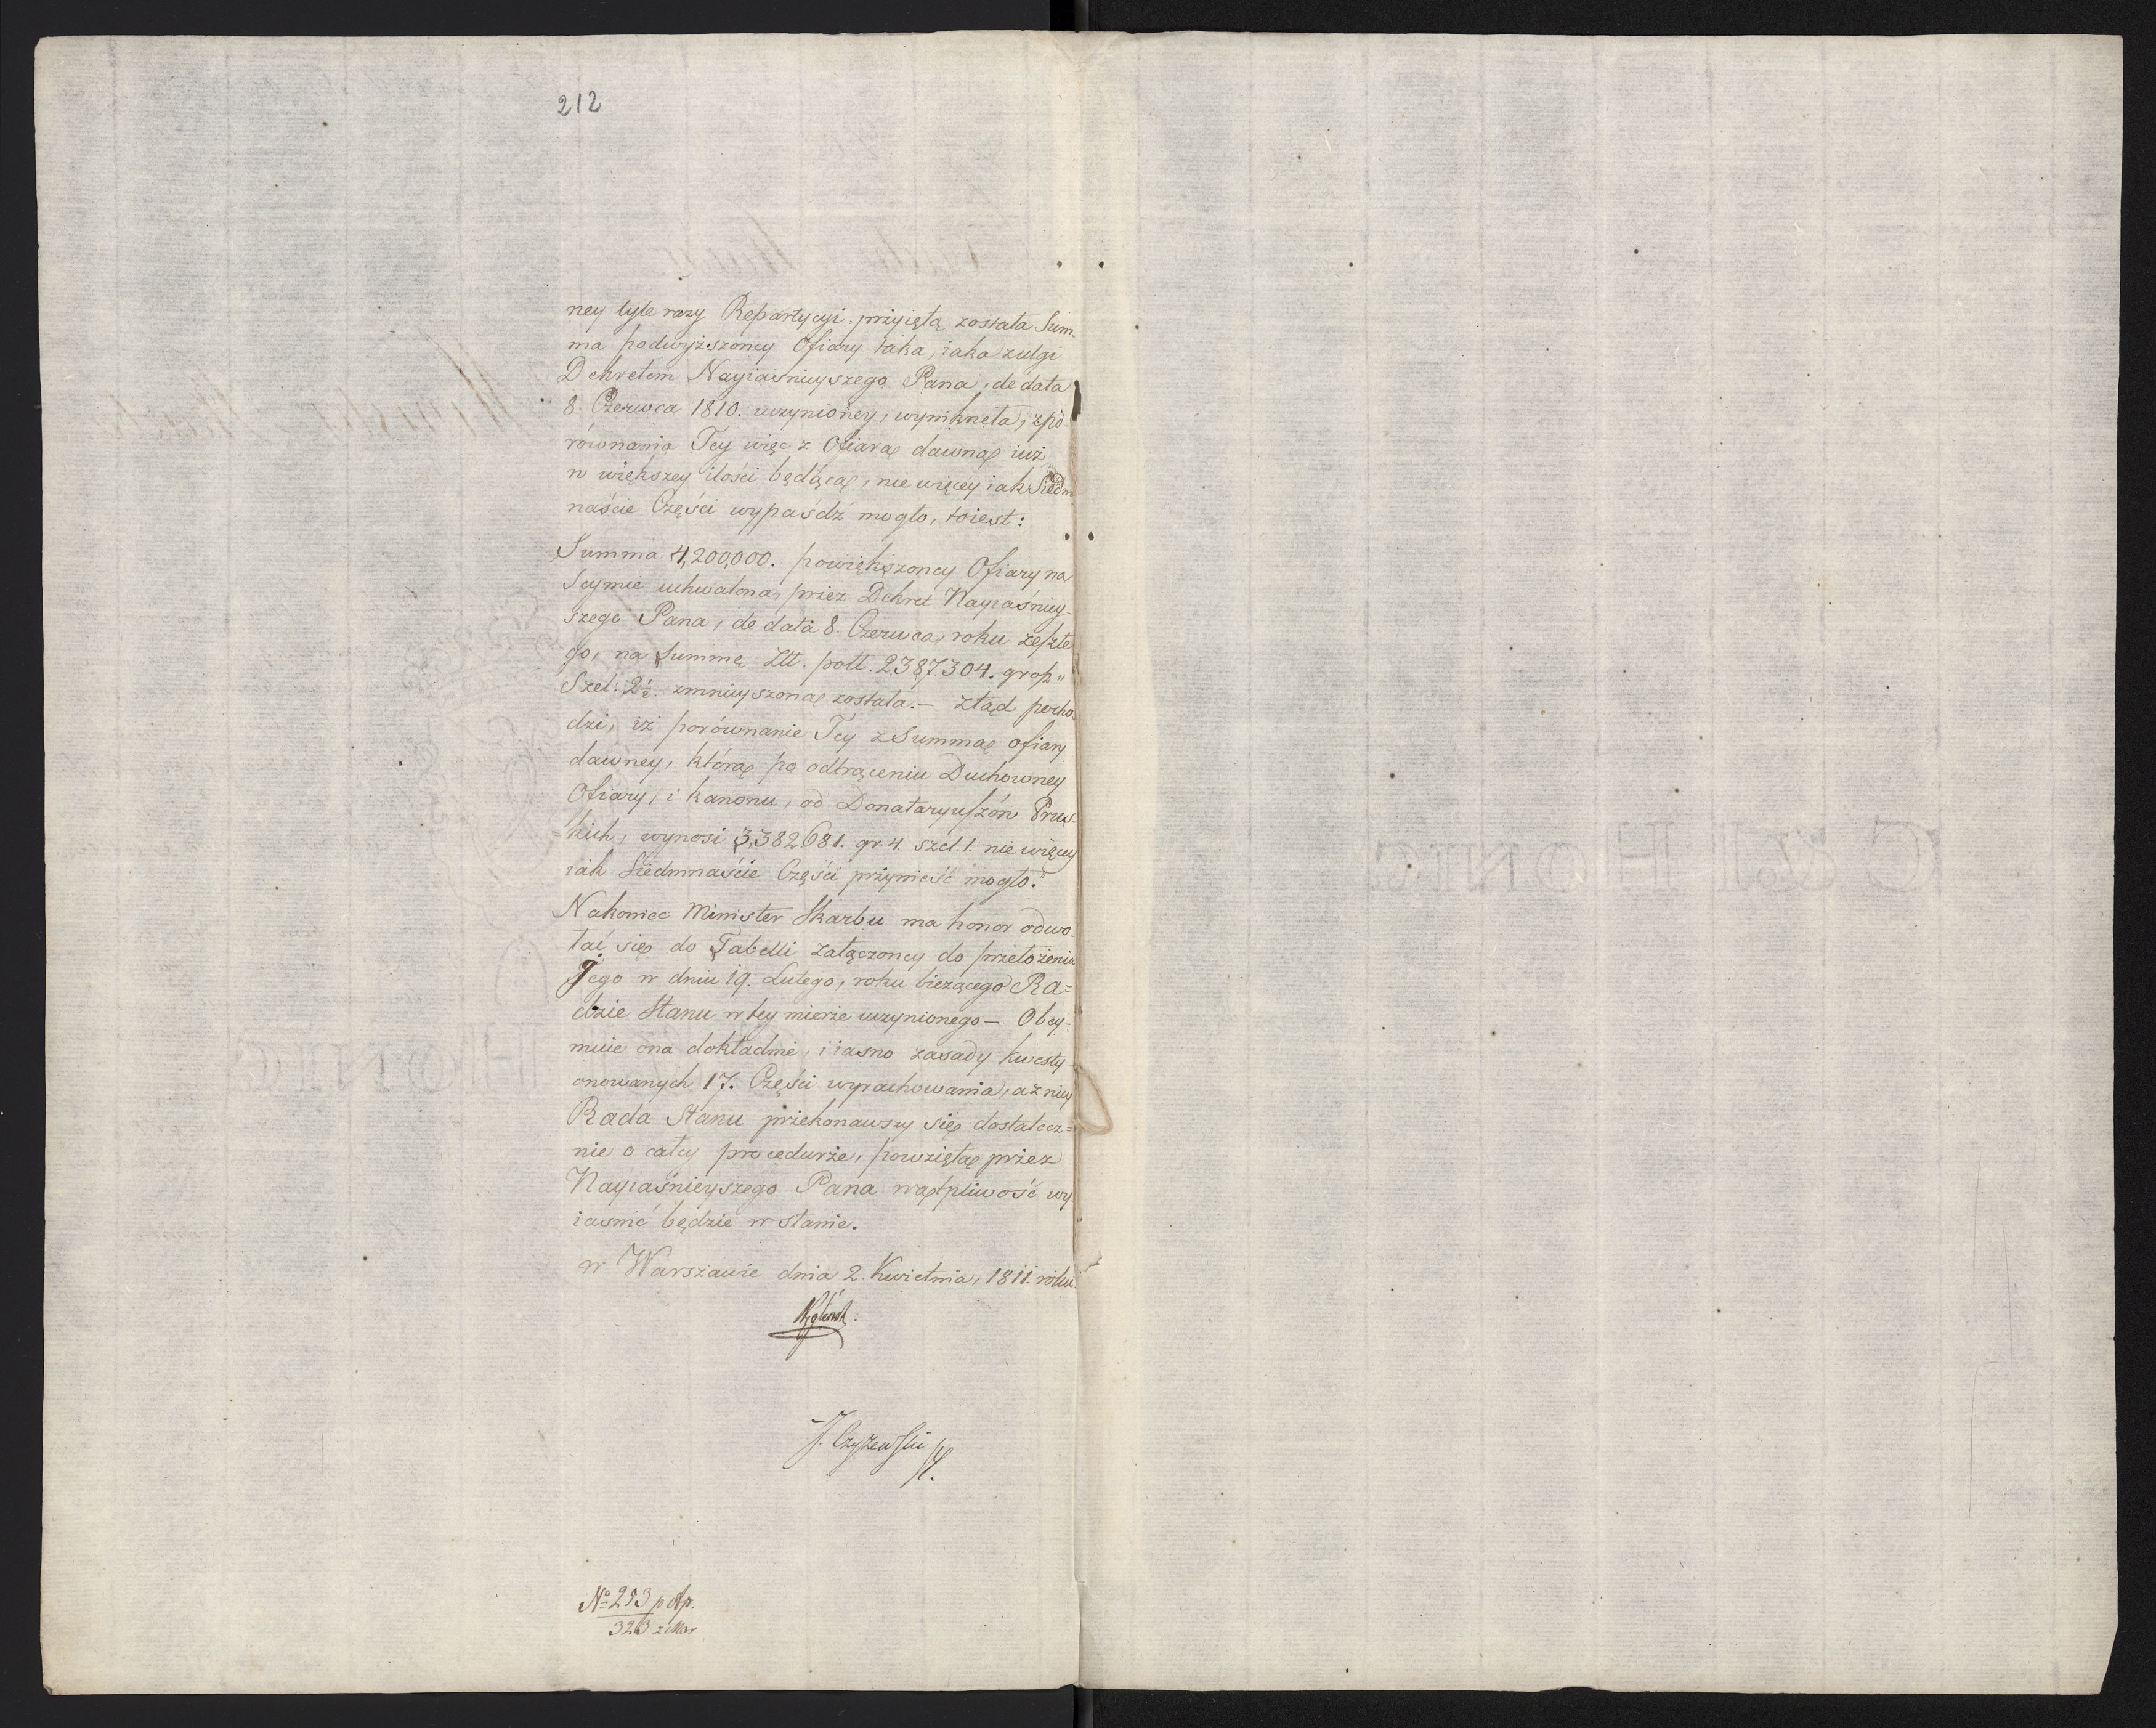 212
ney tyle razy Repartycyi. przyiętą została Sum-
ma podwyższoney Ofiary taka, iaka z ulgi
Dekretem Nayiaśnieyszego Pana, de data
8. Czerwca 1810. uczynioney, wyniknęła, z po-
równania Tey więc z Ofiarą dawną iuż
w większey ilości będącą, nie więcey iak Siedm
naście Części wypaśdź mogło, to iest:
Summa 4,200,000. powiększoney Ofiary na
Seymie uchwalona, przez Dekret Nayiaśniey-
szego Pana, de data 8. Czerwca, roku zeszłe
go, na Summę Złł. poll. 2,387.304. grosz "
Szel: 2½. zmnieyszoną została.— Ztąd pocho-
dzi, iż porównanie Tey z Summą ofiary
dawney, którą po odtrąceniu Duchowney
Ofiary, i kanonu, od Donataryuszów Prus-
=kich, wynosi 3,382681. gr. 4. szel. 1. nie więcey
iak Siedmnaście Części przynieść mogło."
Nakoniec Minister Skarbu ma honor odwo-
łać się do Tabelli załączoney do przełożenia
Jego w dniu 19. Lutego, roku bieżącego Ra=
dzie Stanu w tey mierze uczynionego— Obey-
muie ona dokładnie, i iasno zasady kwesty-
onowanych 17. Części wyrachowania, a z niey
Rada Stanu przekonawszy się dostatecz=
nie o całey procedurze, powziętą przez
Nayiaśnieyszego Pana wątpliwość wy-
iasnić będzie w stanie.
w Warszawie dnia 2. Kwietnia, 1811. roku.
J. Czyżewski
No 253 p Ap.
323 z Mar
C & I HONIG
HONIG